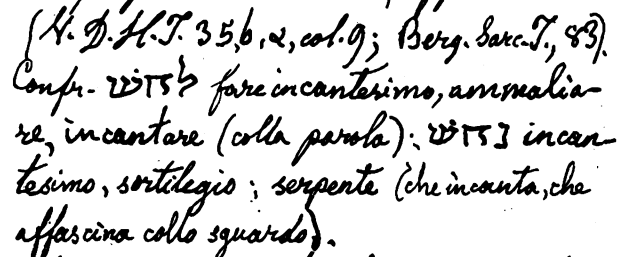 (N. D. H. T. 35, b, 2, col. 9; Berg. Sarc. T., 83).
Confr. לחש fare incantesimo, ammalia-
re, incantare (colla parola): נחש incan-
tesimo, sortilegio; serpente (che incanta, che
affascina collo sguardo).